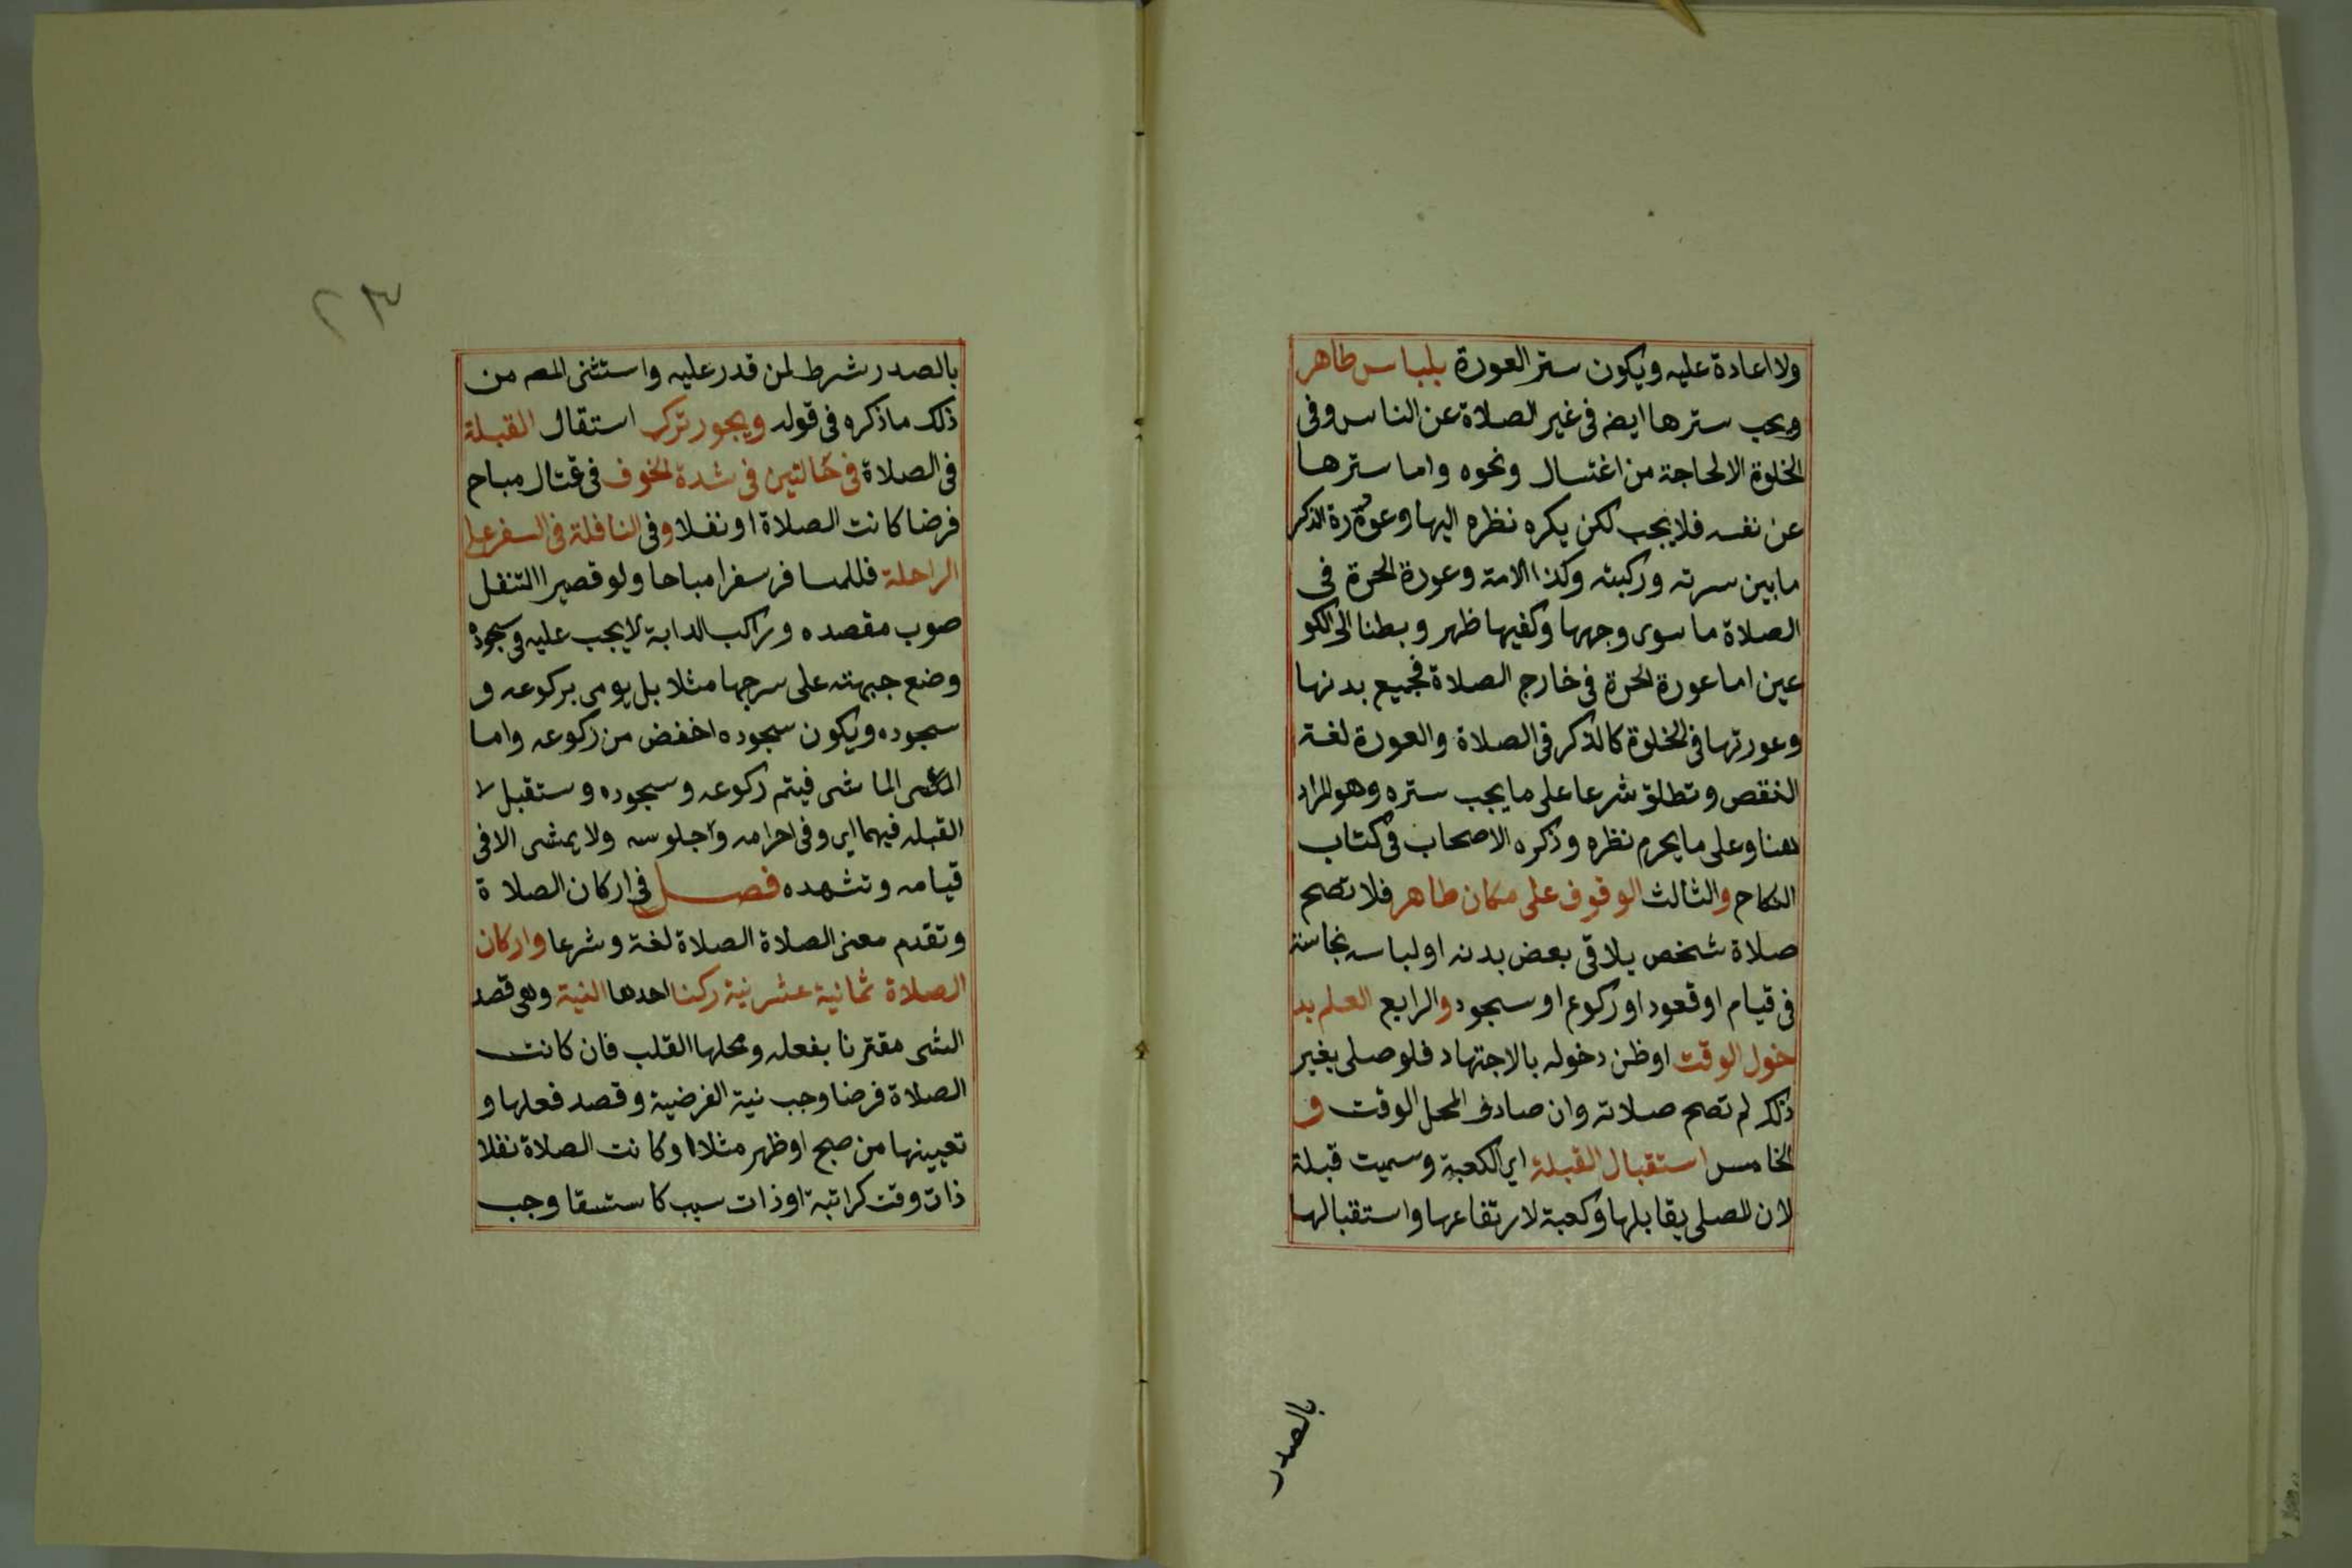 ولا اعادة عليه ويكون ستر العورة بلباس طاهر
ويجب سترها ايضه فى غير الصلاة عن الناس وفى
الخلوة الا لحاجة من اغتسال ونحوه واما سترها
عن نفسه فلا يجب لكن يكره نظره اليها وعورة الذكر
مابين سرته وركبته وكذا الامة وعورة الحرة فى
الصلاة ما سوى وجهها وكفيها ظهر وبطنا الى الكو
عين اما عورة الحرة فى خارج الصلاة فجميع بدنها
وعورتها فى الخلوة كالذكر فى الصلاة والعورة لغة
النقص وتطلق شرعا على ما يجب ستره وهو المراد
هنا وعلى ما يحرم نظره وذكره الاصحاب فى كتاب
النكاح والثالث الوقوف على مكان طاهر فلا تصح
صلاة شخص يلاقى بعض بدنه او لباسه نجاسة
فى قيام او قعود او ركوع او سجود والرابع العلم بد
خول الوقت اوظن دخوله بالاجتهاد فلوصلى بغير
ذلك لم تصح صلاته وان صادف المحل الوقت و
الخامس استقبال القبلة اى الكعبة وسميت قبلة
لان المصلى يقابلها وكعبة لارتفاعها واستقبالها
بالصدر
٢٣
بالصدر شرط لمن قدر عليه واستثنى المصه من
ذلك ماذكره فى قوله ويجور ترك استقال القبلة
فى الصلاة فى حالتين فى شدة الخوف فى قتال مباح
فرضا كانت الصلاة او نفلا وفى النافلة فى السفر على
الراحلة فللمسافر سفرا مباحا ولو قصيرا التنفل
صوب مقصده وراكب الدابة لا يجب عليه فى سجوده
وضع جبهته على سرجها مثلا بل يومى بركوعه و
سجوده ويكون سجوده اخفض من ركوعه واما
الماشى فيتم ركوعه وسجوده وستقبل
القبله فيهما اى وفى احرامه وجلوسه ولا يمشى الا فى
قيامه وتشهده فصل فى اركان الصلاة
وتقدم معنى الصلاة الصلاة لغة وشرعا واركان
الصلاة ثمانية عشر نية ركنا احدها النية وهى قصد
الشى مقترنا بفعله ومحلها القلب فان كانت
الصلاة فرضا وجب نية الفرضية وقصد فعلها و
تعيينها من صبح او ظهر مثلا او كانت الصلاة نفلا
ذات وقت كراتبة او ذات سبب كاستسقا وجب